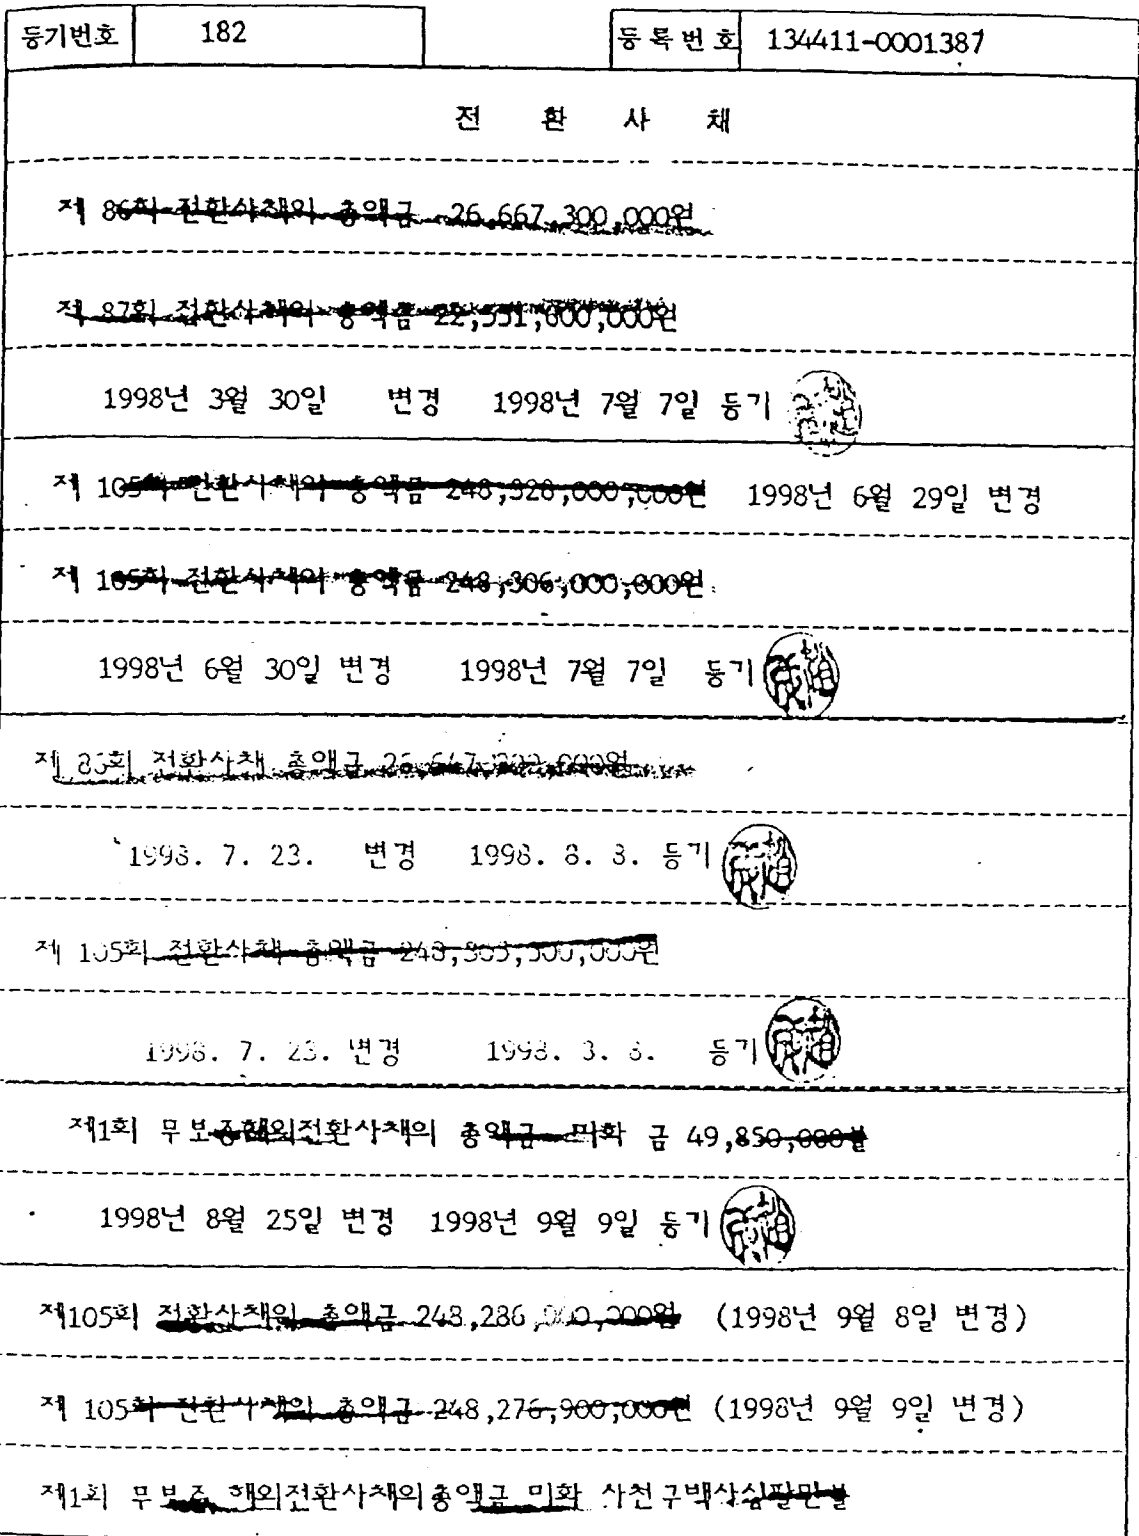 등기번호 182 등록번호 134411-0001387
전 환 사 채
제 86회 전환사채의 총액금 26,667,300,000원
제 87회 전환사채의 총액금 22,551,000,000원
1998년 3월 30일 변경 1998년 7월 7일 등기
제 105회 전환사채의 총액금 248,328,000,000원 1998년 6월 29일 변경
제 105회 전환사채의 총액금 248,306,000,000원
1998년 6월 30일 변경 1998년 7월 7일 등기
제 86회 전환사채 총액금
1998. 7. 23. 변경 1998. 8. 8. 등기
제 105회 전환사채 총액금
1998. 7. 23. 변경 1998. 8. 8. 등기
제1회 무보증해외전환사채의 총액금 미화 금 49,850,000불
1998년 8월 25일 변경 1998년 9월 9일 등기
제105회 전환사채의 총액금 248,286,900,000원 (1998년 9월 8일 변경)
제 105회 전환사채의 총액금 248,276,900,000원 (1998년 9월 9일 변경)
제1회 무보증 해외전환사채의총액금 미화 사천구백사십팔만불